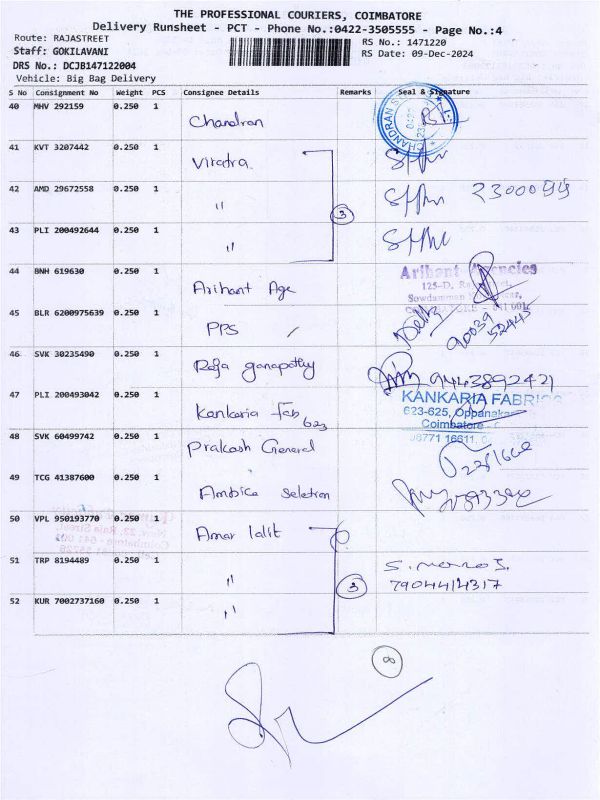 THE PROFESSIONAL COURIERS, COIMBATORE
Delivery Runsheet - PCT - Phone No.:0422-3505555 - Page No.:4
Route: RAJASTREET
RS No.: 1471220
Staff: GOKILAVANI
RS Date: 09-Dec-2024
DRS No.: DCJB147122004
Vehicle: Big Bag Delivery
S No Consignment No Weight PCS Consignee Details Remarks Seal & Signature
40 MHV 292159 0.250 1 Chandran
41 KVT 3207442 0.250 1
42 AMD 29672558 0.250 1 " 2300099
3
43 PLI 200492644 0.250 1 "
44 BNH 619630 0.250 1 Arihant Age
Arihant Agencies
125-D,
45 BLR 6200975639 0.250 1 PPS
46 SVK 30235490 0.250 1 Raja ganapathy 9443892421
47 PLI 200493042 0.250 1 Kankaria Fab 623
KANKARIA FABRICS
623-625, Oppanakar
Coimbatore -
48 SVK 60499742 0.250 1 Prakash General
49 TCG 41387600 0.250 1 Ambica Seletion
50 VPL 950193770 0.250 1 Amar lalit
51 TRP 8194489 0.250 1 "
7904414317
3
52 KUR 7002737160 0.250 1 "
8